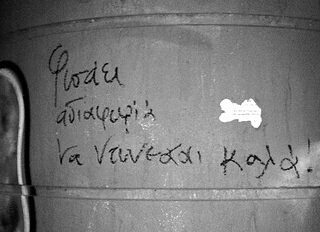 Φυσάει
αδιαφορία
να ντύνεσαι καλά!